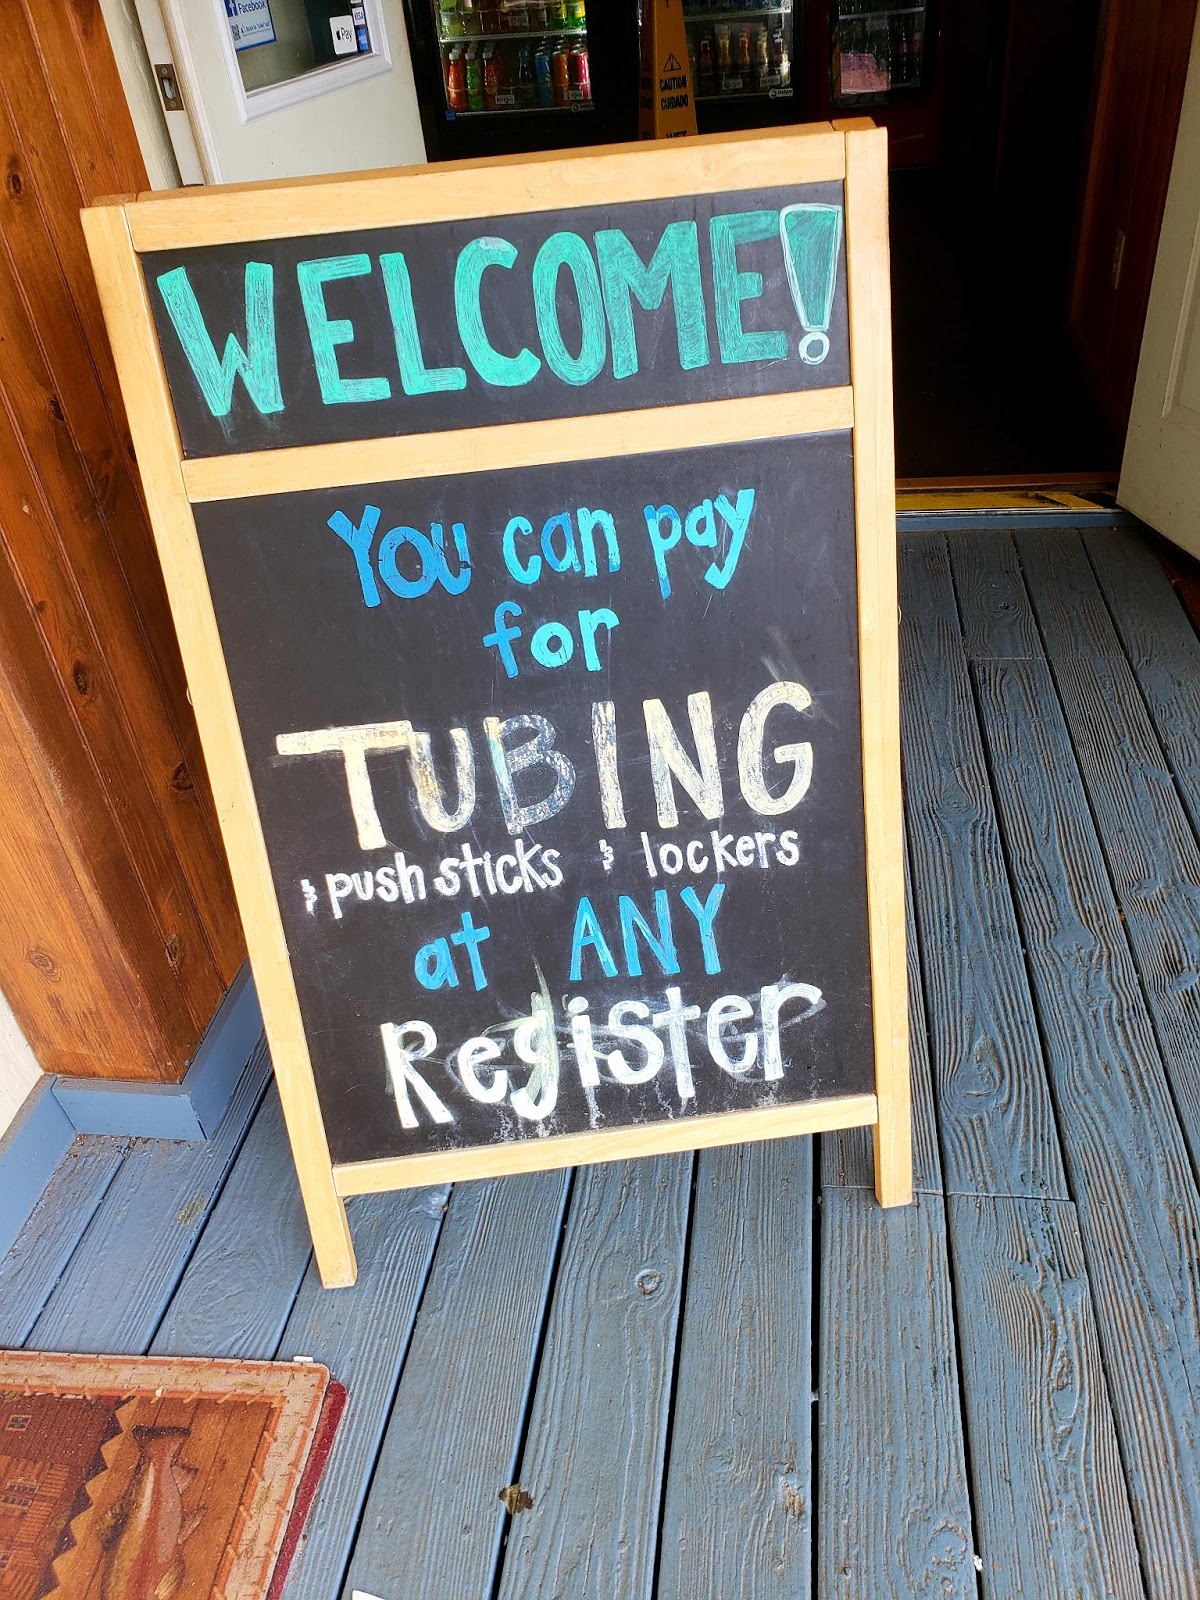 Facebook
Pay
VISA
CAUTION
CUIDADO
WET
WELCOME!
You can pay
for
TUBING
& push sticks & lockers
at ANY
Register